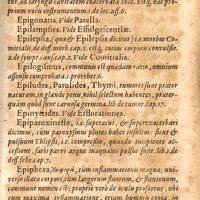 tur, ad laryngu cavitatem coacervata. ibid. Estq́; hac pro-
prium vocis instrumentum. l. de loc. aff. 6.
Epigonatis. Vide Patella.
Epilampsies. Vide Effulgescentiæ.
Epilepsia, quæ & Epilepsis dicitur, i.e. morbus Co-
mitialis, de diff. morb. cap. 5. est q́; totius corporis convulsio.
2. de sympt. caus. cap. 2. Vide Comitialis.
Epilogismus, communis est quædam ratio, omnium
assensu comprobata. 1. protrheb. 6.
Epiludes, Parulides, Thymi, tumores sunt præter
naturam, in glande pene, nihil selectum habentes, præter-
quàm quòd sunt carnosa germina. lib. de tumor. cap. 17.
Epinyctides. Vide Efflorationes.
Epiparoxinesse, i.e. superacui, & superexacerbari
dicimus, cùm paroxysmus plures habet insultus: sicut &
pulsuum Thlipsis, i.e. compressio, quando incipiente ac-
cessione, sæpè parvi atque inæquales pulsus sunt. lib. 1. de
diff. febr. cap. 7.
Epiphora, ἐπιφορὰ, tùm inflammationem magna, uni-
versis corporis partibus, tùm rheuma, fluorem, & fluxionem,
commune nomen est; propriè verò de oculu profertur, ubi
cum maxima inflammatione, etiam humoris copia, in